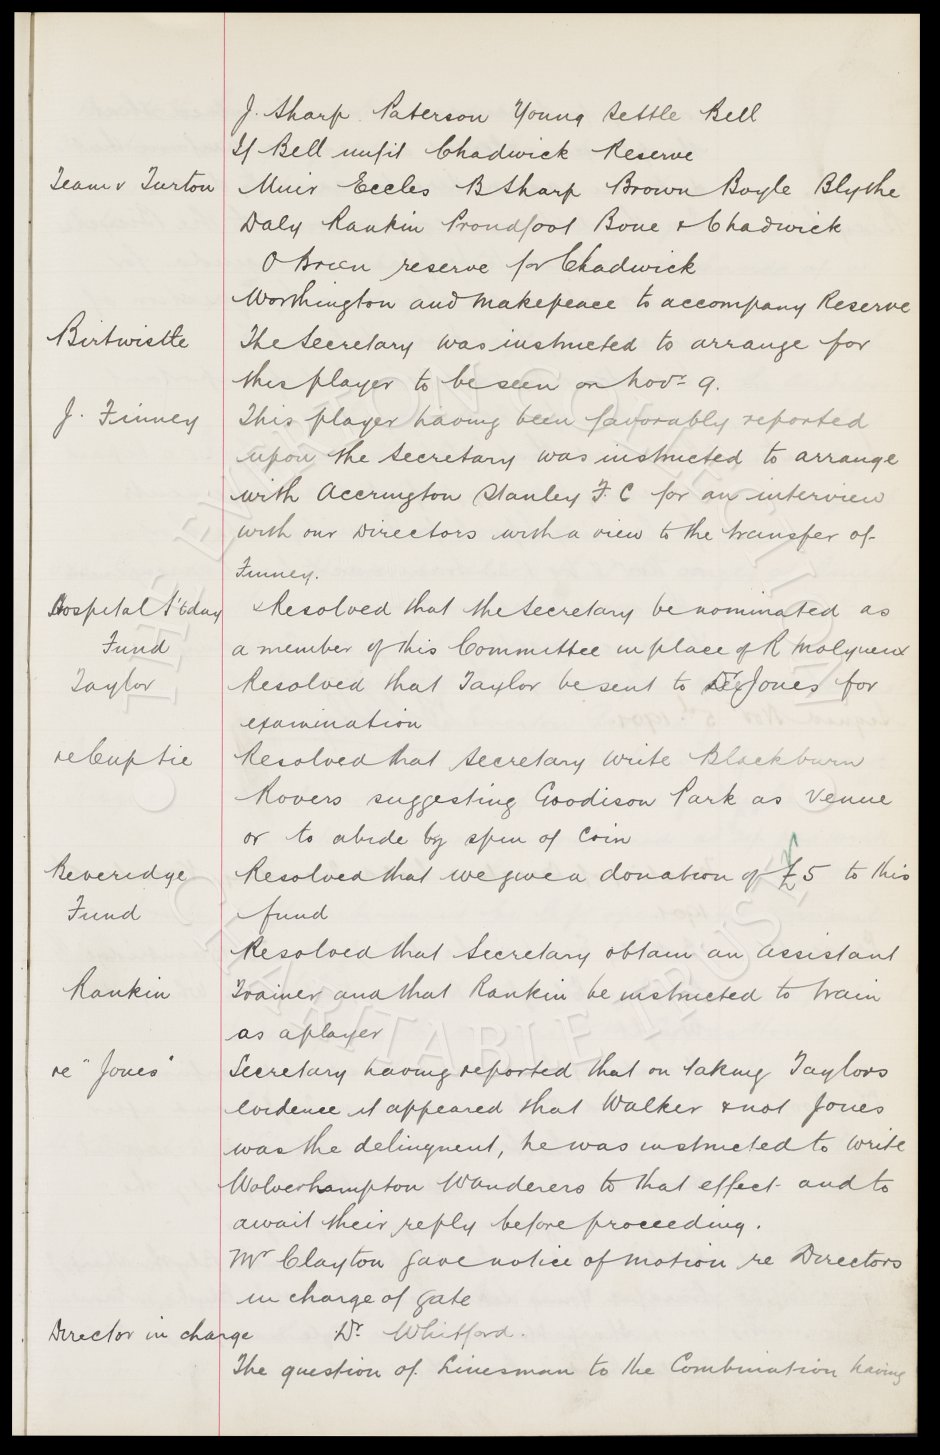 J. Sharp Paterson Young Settle Bell
If Bell unfit Chadwick Reserve
Team v Turton Muir Eccles B Sharp Brown Boyle Blythe
Daly Rankin Proudfoot Bone & Chadwick
O Brien reserve for Chadwick
Worthington and Makepeace to accompany Reserve
Birtwistle The Secretary was instructed to arrange for
this player to be seen on Novr 9.
J. Finney This player having been favorably reported
upon the Secretary was instructed to arrange
with Accrington Stanley F.C for an interview
with our Directors with a view to the transfer of
Finney.
Hospital S'tday Resolved that the Secretary be nominated as
Fund a member of this Committee in place of R Molyneux
Taylor Resolved that Taylor be sent to Dr Jones for
examination
re Cup tie Resolved that Secretary write Blackburn
Rovers suggesting Goodison Park as venue
or to abide by spin of coin
Beveridge Resolved that we give a donation of £5 to this
Fund fund
Resolved that Secretary obtain an assistant
Rankin Trainer and that Rankin be instructed to train
as a player
re "Jones" Secretary having reported that on taking Taylors
evidence it appeared that Walker & not Jones
was the delinquent, he was instructed to write
Wolverhampton Wanderers to that effect and to
await their reply before proceeding.
Mr Clayton gave notice of motion re Directors
in charge of gate
Director in charge Dr. Whitford.
The question of Linesman to the Combination having
THE EVERTON COLLECTION
CHARITABLE TRUST